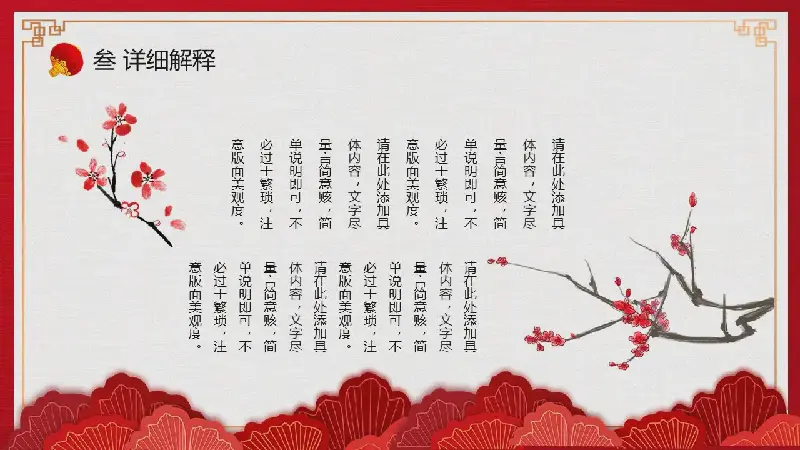 叁 详细解释
请在此处添加具
体内容，文字尽
量言简意赅，简
单说明即可，不
必过于繁琐，注
意版面美观度。
请在此处添加具
体内容，文字尽
量言简意赅，简
单说明即可，不
必过于繁琐，注
意版面美观度。
请在此处添加具
体内容，文字尽
量言简意赅，简
单说明即可，不
必过于繁琐，注
意版面美观度。
请在此处添加具
体内容，文字尽
量言简意赅，简
单说明即可，不
必过于繁琐，注
意版面美观度。